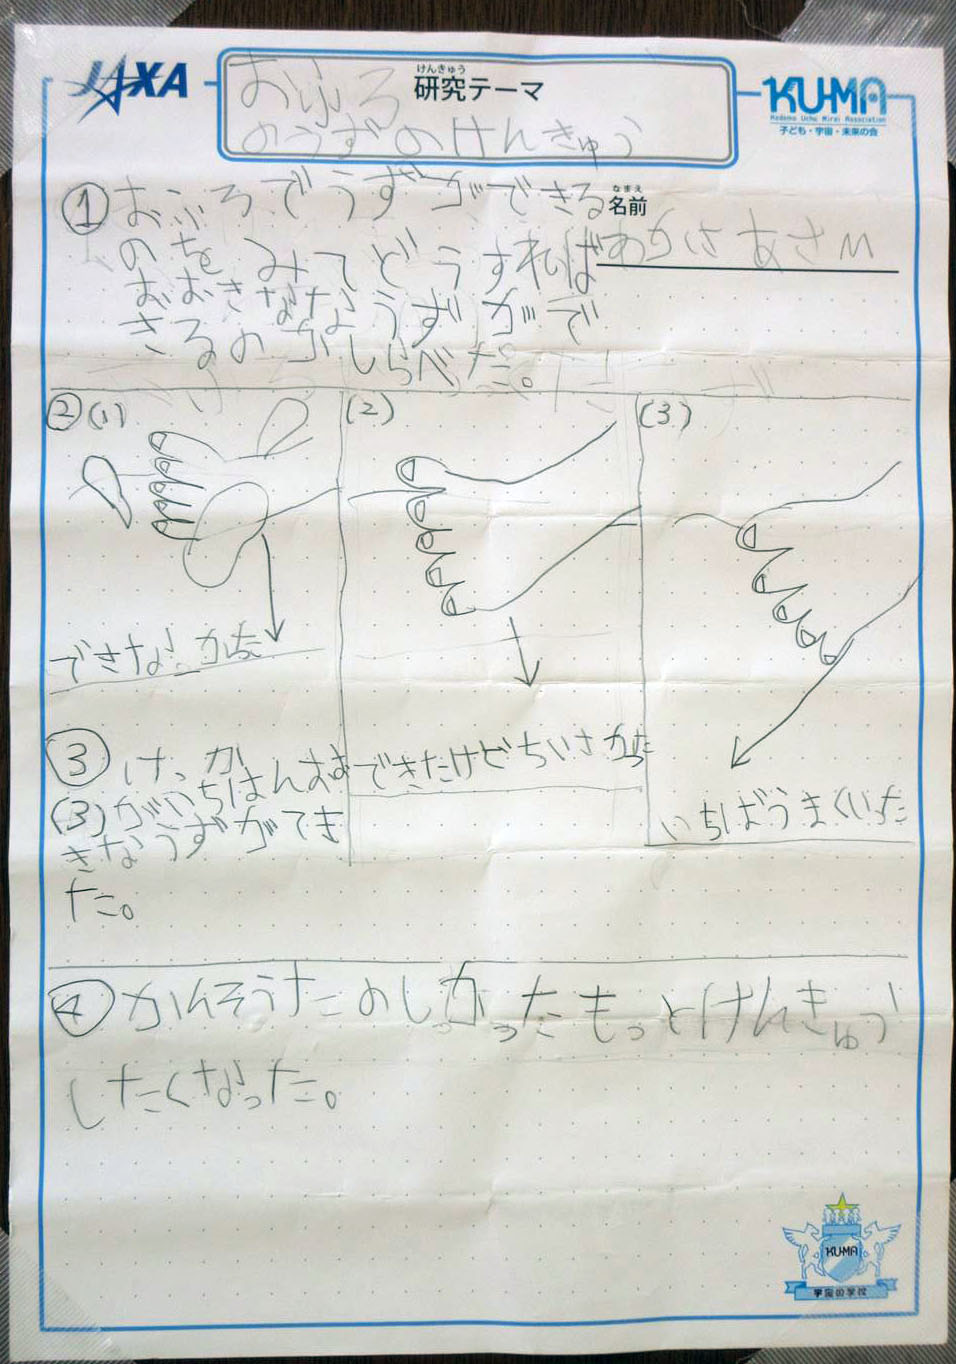 JAXA
けんきゅう
研究テーマ
おふろ
のうずのけんきゅう
KU-MA
Kodomo Uchu Mirai Association
子ども・宇宙・未来の会
なまえ
名前
わかさ あさひ
①おふろでうずができる
のをみてどうすれば
おおきなうずがで
きるのかしらべた。
②(1)
できなかった
(2)
できたけどちいさかった
(3)
いちばうまくいった
③けっか
(3)がいちばんおお
きなうずができ
た。
④かんそうたのしかったもっとけんきゅう
したくなった。
KU-MA
宇宙の学校